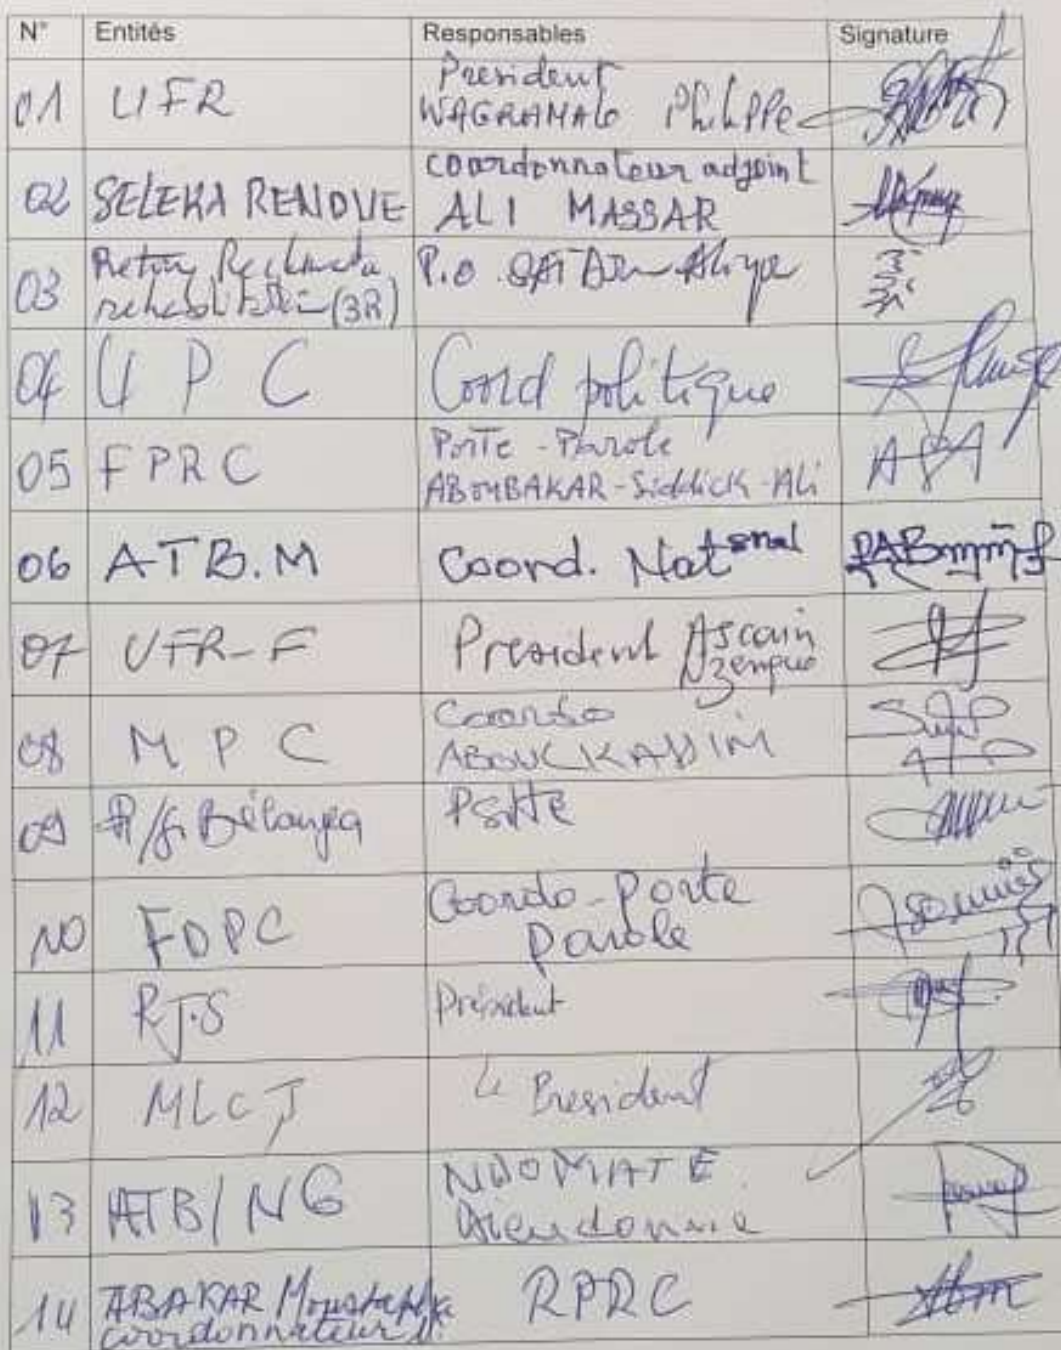 N° Entités Responsables Signature
01 UFR President
WAGRAMALE Philippe
02 SELEKA RENOVE coordonnateur adjoint
ALI MASSAR
03 Retour Reclamation
rehabilitation (3R) P.O
04 U P C Coord politique
05 FPRC Porte-Parole
ABOUBAKAR-Siddick-Ali
06 ATB.M Coord. National
07 UFR-F President Ascain
Nzengue
08 M P C Coordo
ABOUCKASSIM
09 R/J Bélanga
10 FDPC Coordo-Porte
Parole
11 RJ.S Président
12 MLCJ Le President
13 ATB/NG NDOMATE
Dieudonnie
14 ABAKAR Moustapha RPRC
coordonnateur